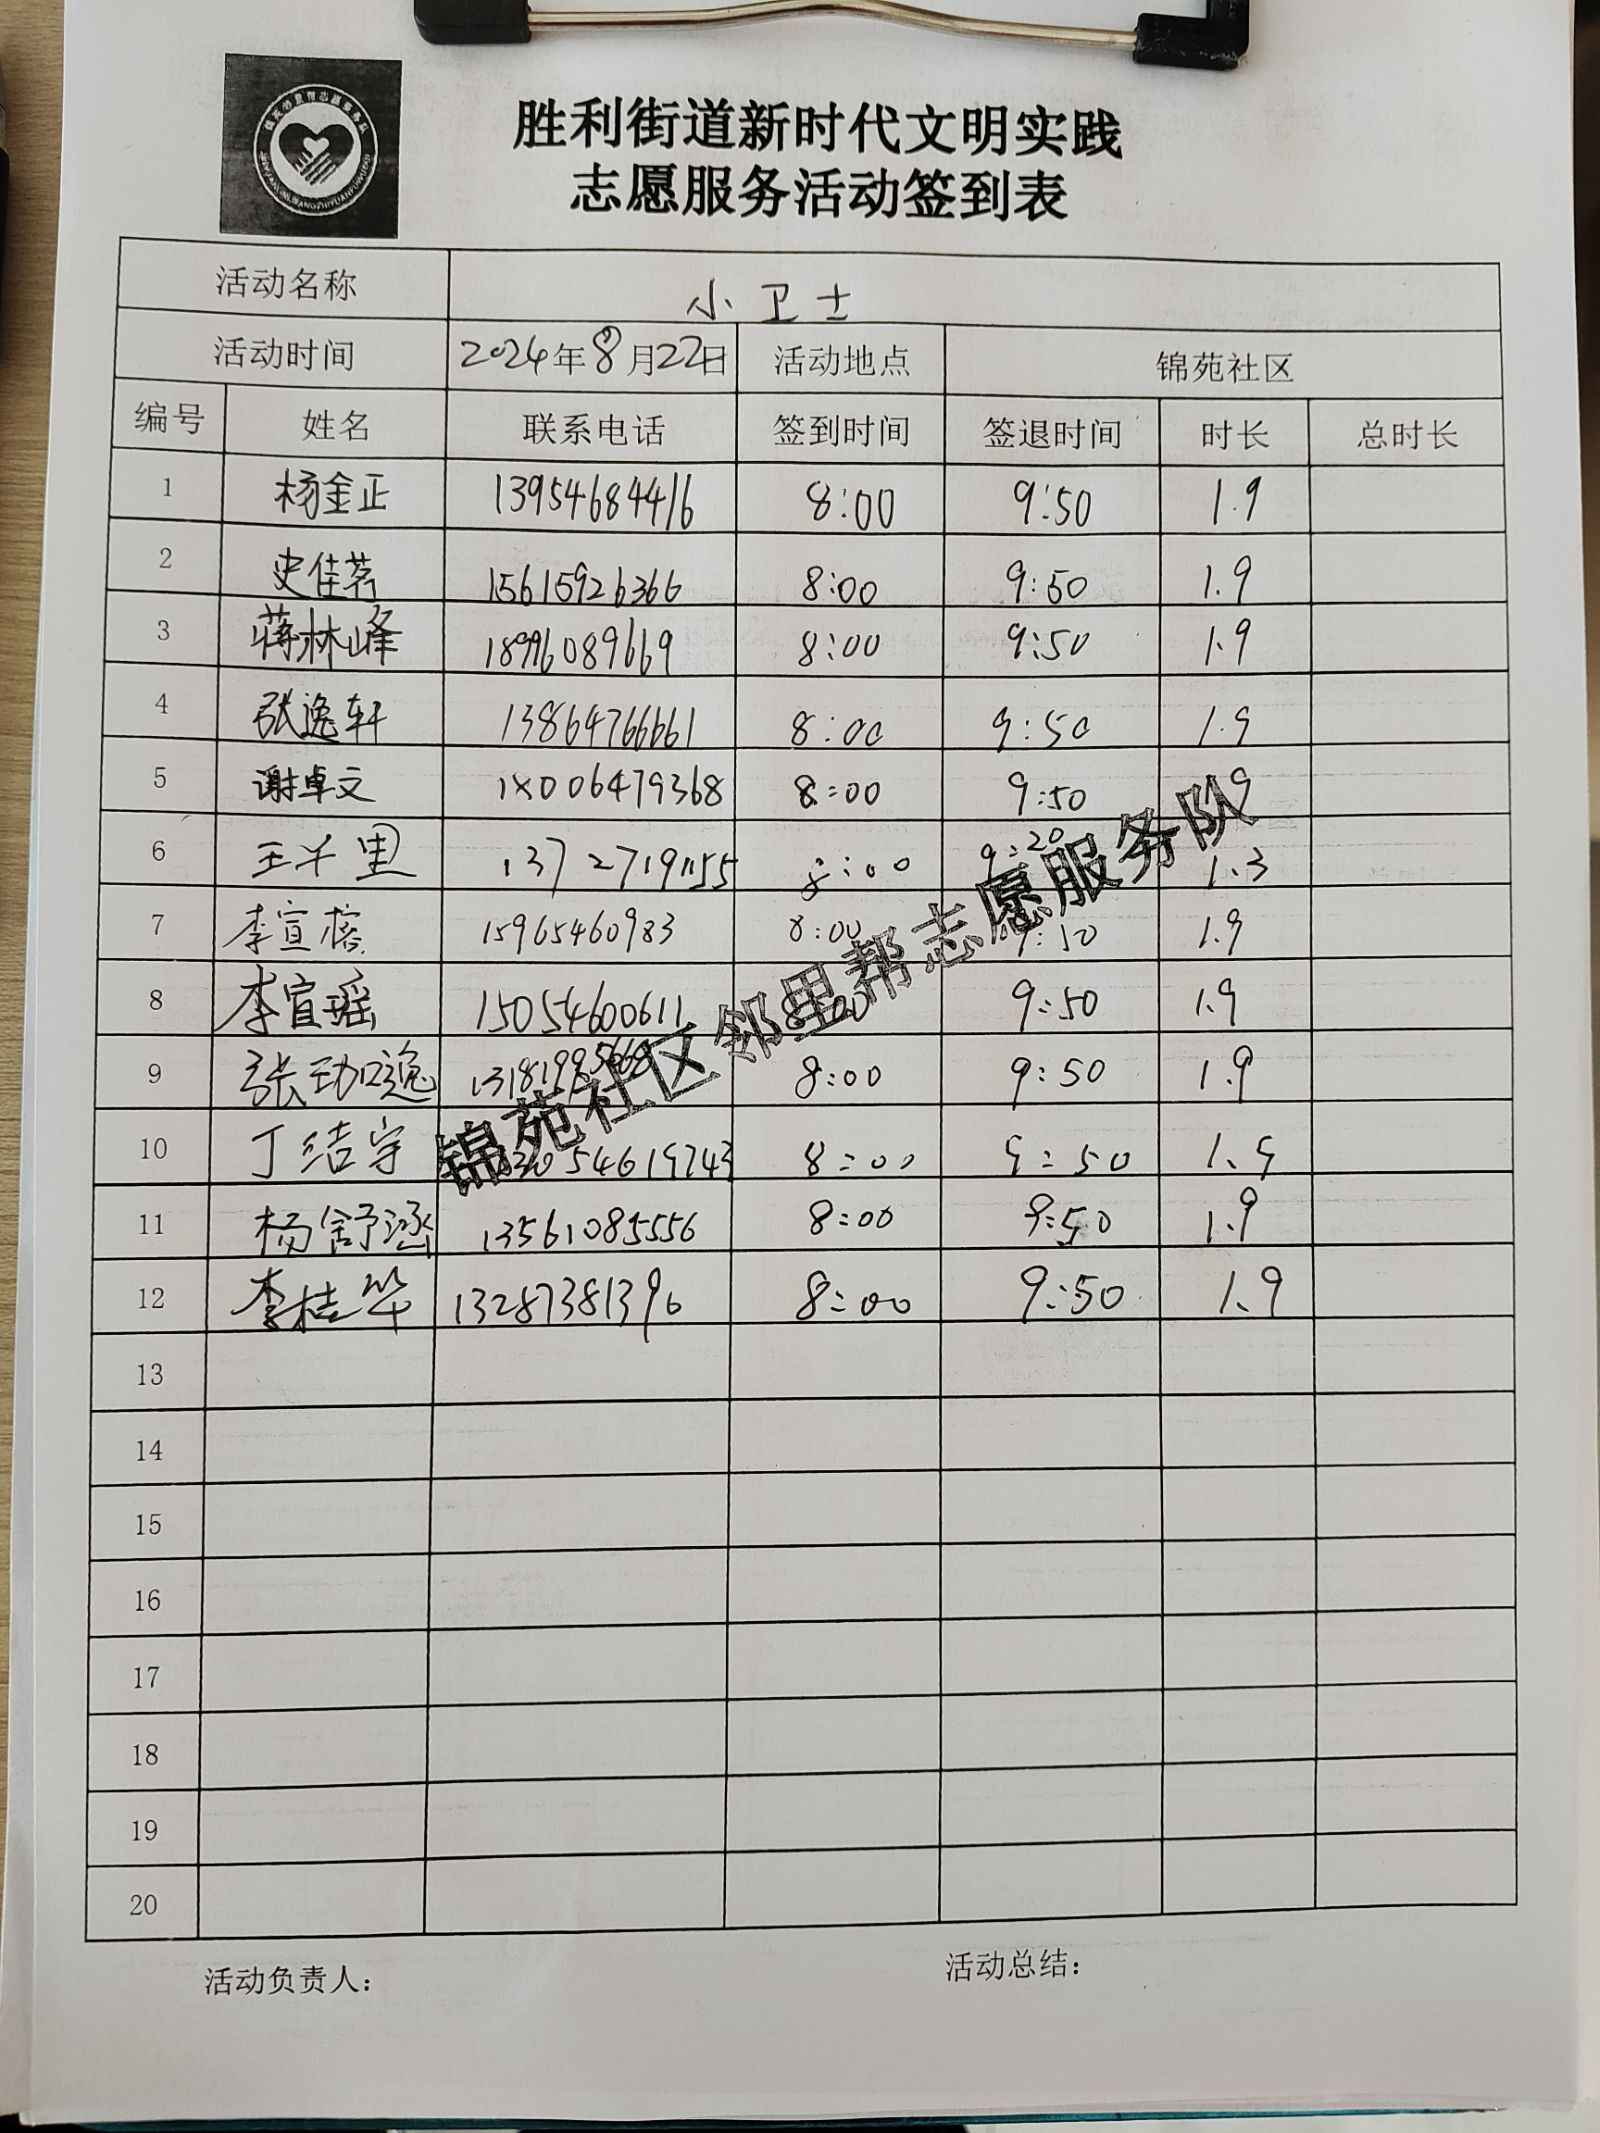 胜利街道新时代文明实践
志愿服务活动签到表
活动名称 小卫士
活动时间 2024年8月22日 活动地点 锦苑社区
编号 姓名 联系电话 签到时间 签退时间 时长 总时长
1 杨金正 13954684416 8:00 9:50 1.9
2 史佳茗 15615926366 8:00 9:50 1.9
3 蒋林峰 18996089669 8:00 9:50 1.9
4 张逸轩 13864766661 8:00 9:50 1.9
5 谢卓文 18006479368 8:00 9:50 1.9
6 王千里 13727191155 8:00 9:20 1.3
7 李宣榕 15965460983 8:00 1.9
8 李宣瑶 15054600611 8:00 9:50 1.9
9 张劲逸 8:00 9:50 1.9
10 丁洁宇 8:00 9:50 1.9
11 杨舒涵 13561085556 8:00 9:50 1.9
12 李桂华 13287381396 8:00 9:50 1.9
13
14
15
16
17
18
19
20
锦苑社区邻里帮志愿服务队
活动负责人： 活动总结：